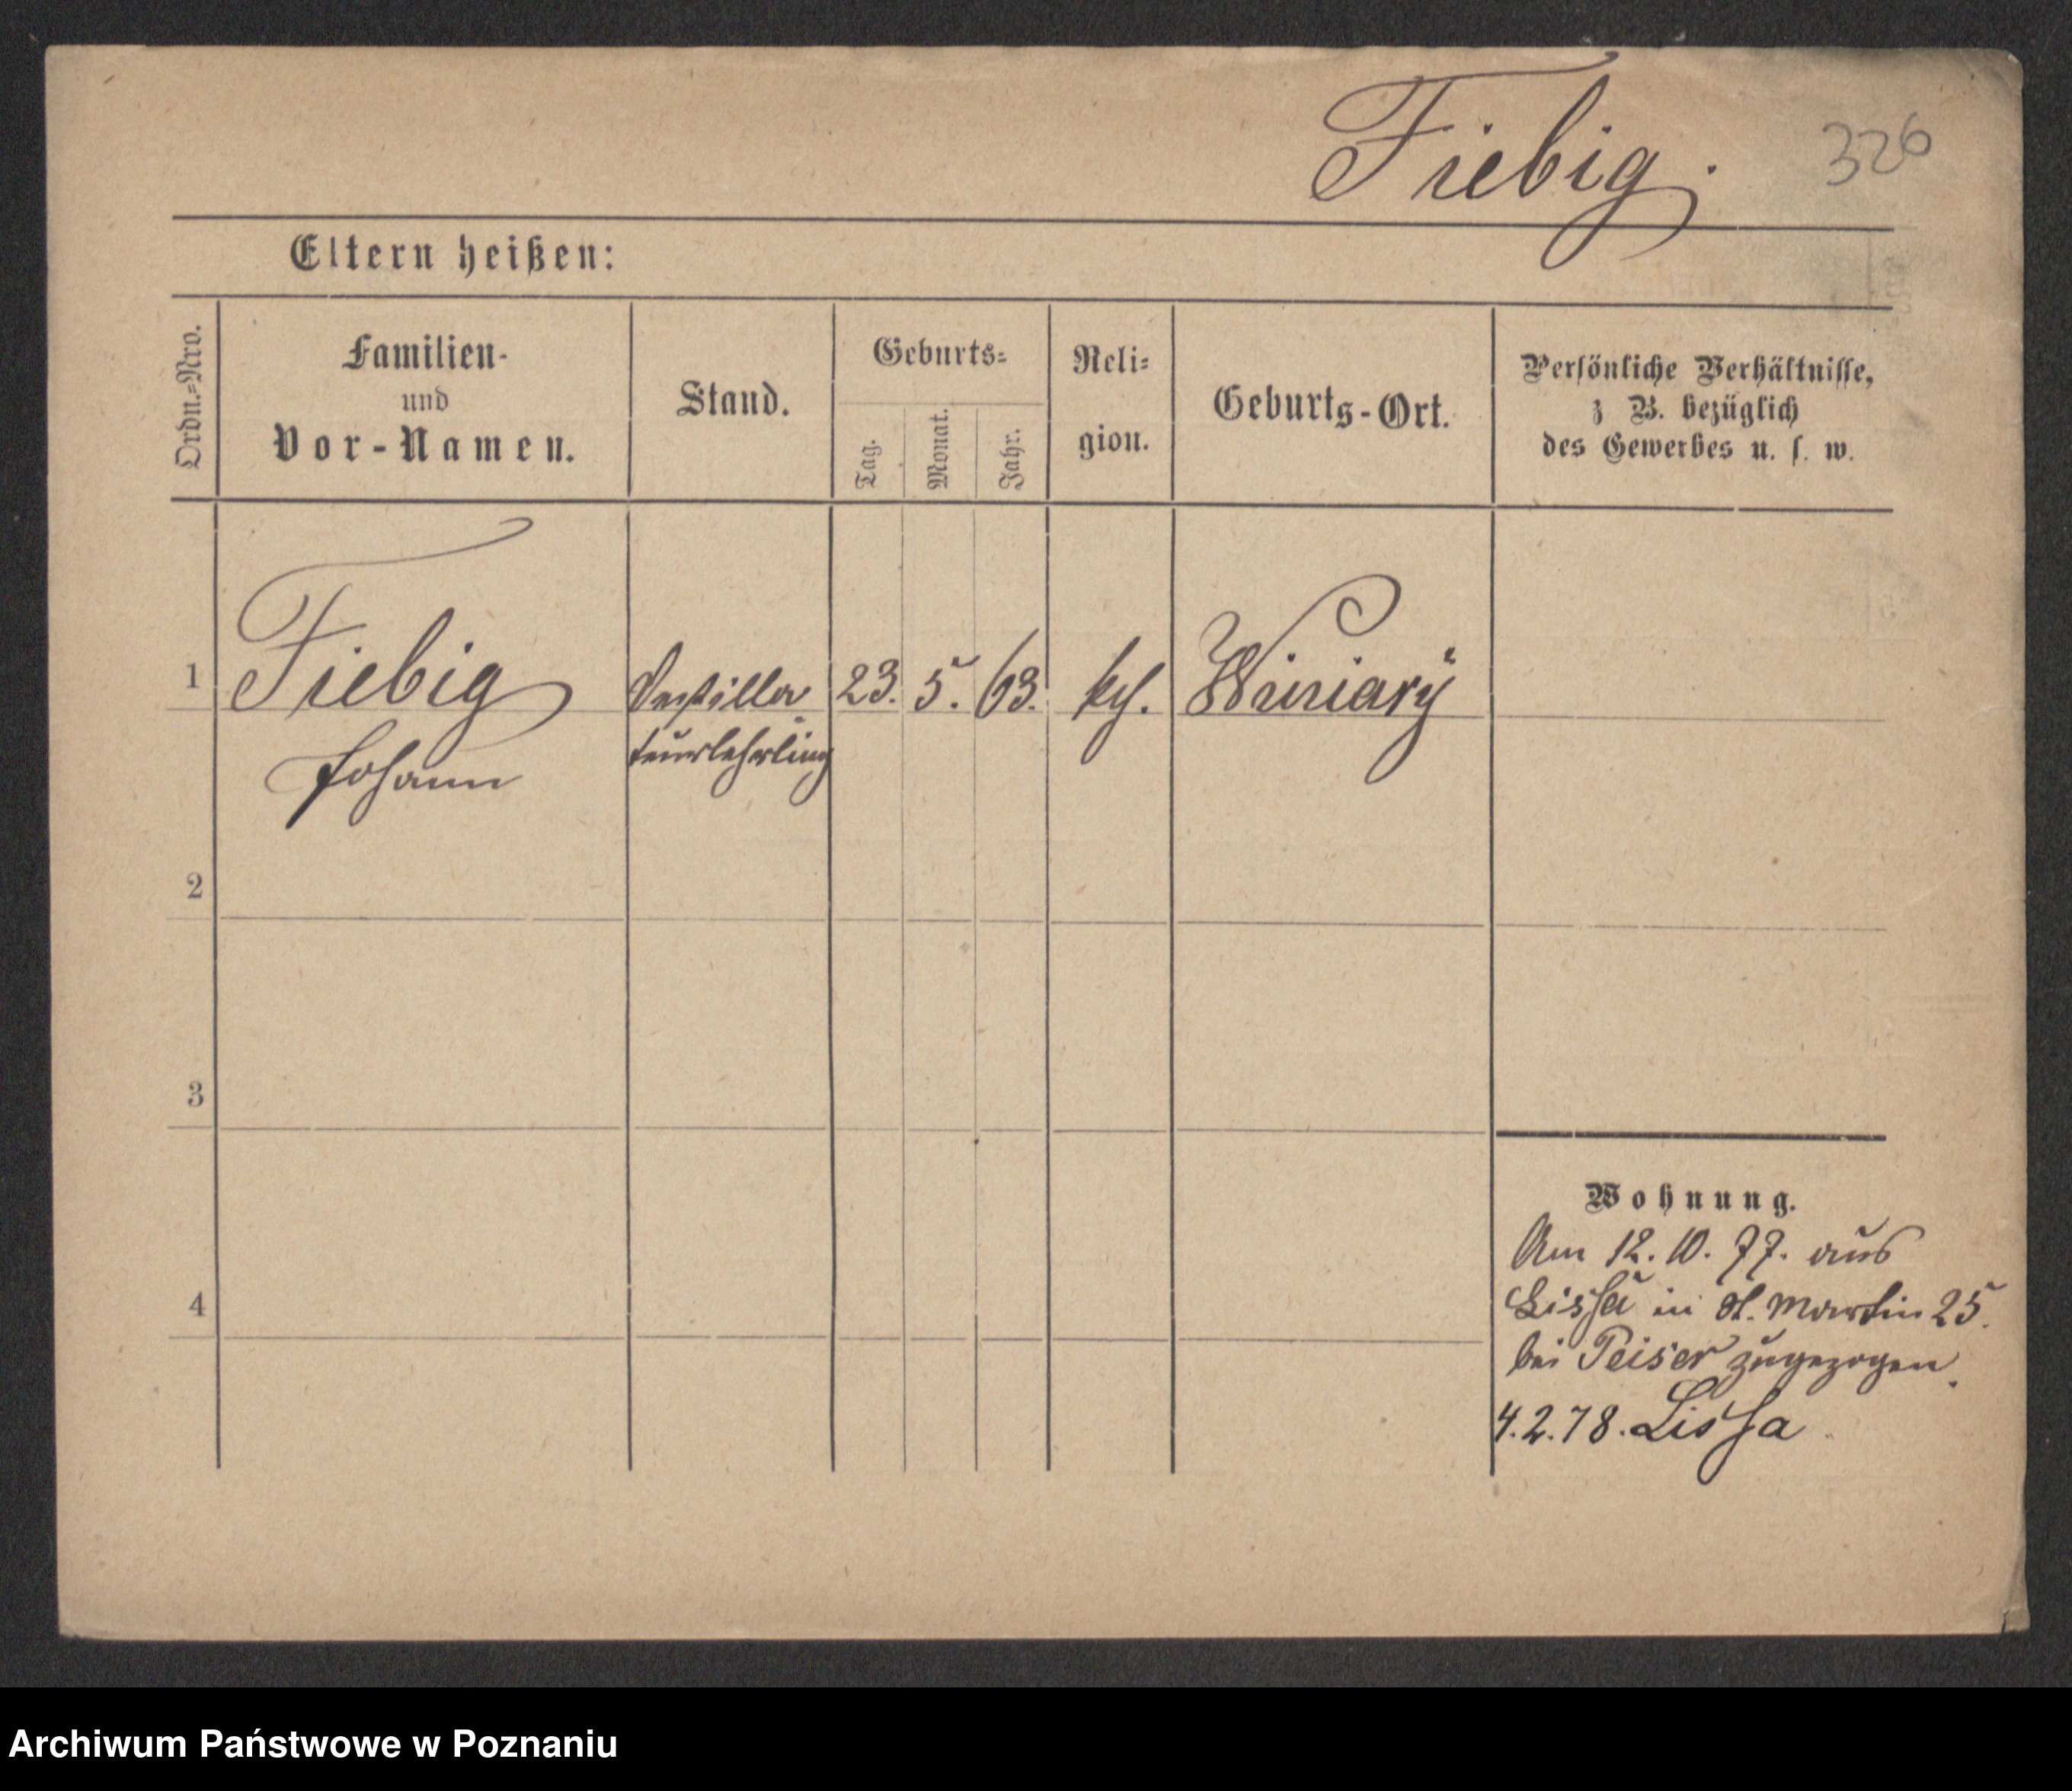 Fiebig.
326
Eltern heißen:
Ordn.=Nro.
Familien-
und
Vor-Namen.
Stand.
Geburts=
Tag.
Monat.
Jahr.
Reli=
gion.
Geburts-Ort.
Persönliche Verhältnisse,
z B. bezüglich
des Gewerbes u. s. w.
1 Fiebig Destilla 23. 5. 63. Winiary
Johann teurlehrling
2
3
4
Wohnung.
Am 12. 10. 77. aus
Lissa in St. Martin 25.
bei Peiser zugezogen.
4.2.78. Lissa
Archiwum Państwowe w Poznaniu